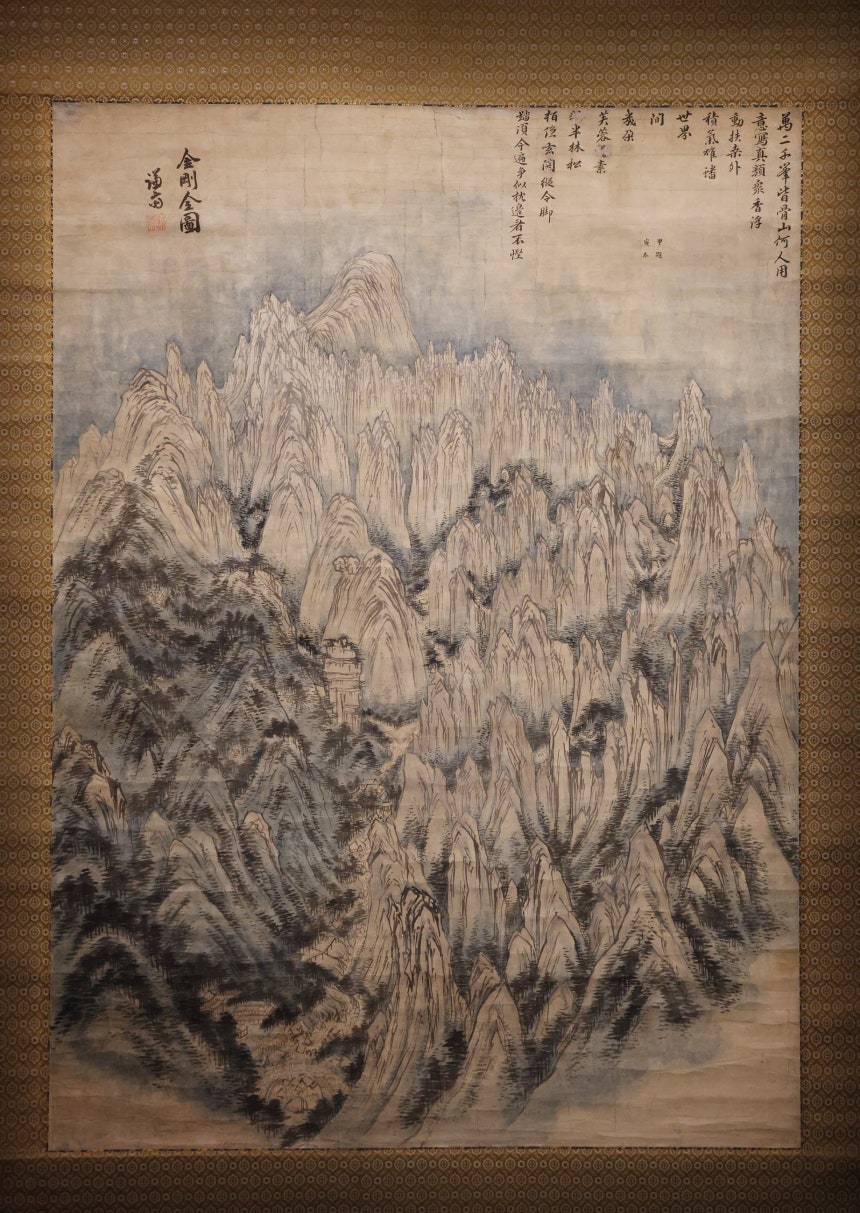 萬二千峯皆骨山何人用
意寫真顔衆香浮
動扶桑外
積氣雄蟠
世界
間
幾朶
芙蓉素
半林松
柏隱玄關縱令脚
踏須今遍爭似枕邊看不慳
甲寅
冬題
金剛全圖
謙齋